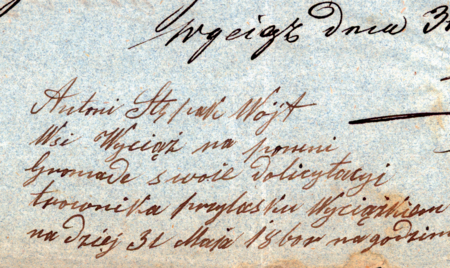 Wyciąż dnia 3
Antoni Stępak Wójt
Wsi Wyciąż na
Gromade swoie do licytacyi
trownika przylasku Wyciążkiem
na dziej 31 Maja 1860r na godzin